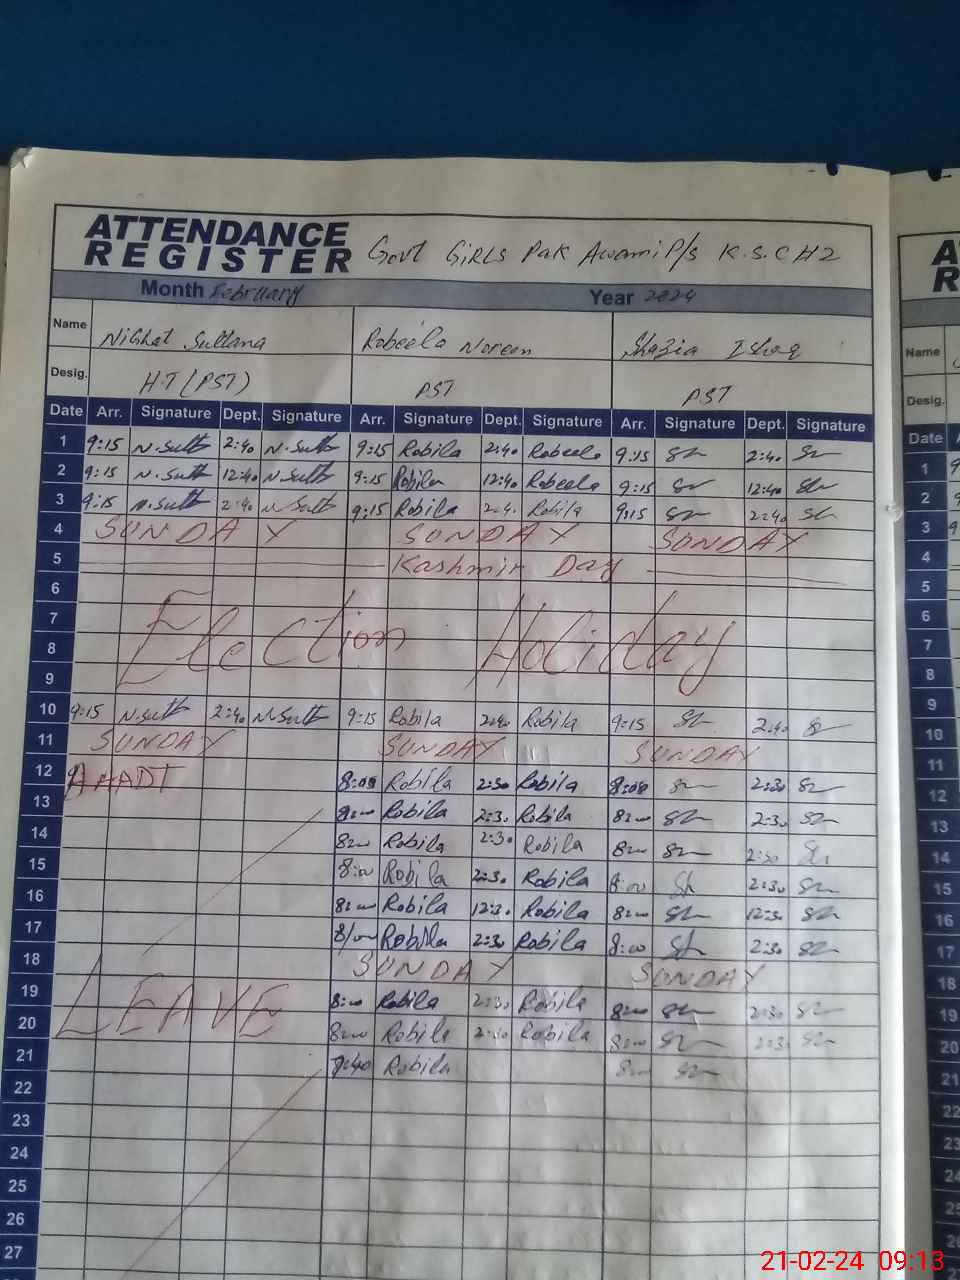 ATTENDANCE REGISTER Govt GIRLS Pak Awami P/s K.S.C H2
Month February Year 2024
Name Nighat Sultana Robeela Noreen Shazia Ishaq
Desig. H.T (PST) PST PST
Date Arr. Signature Dept. Signature Arr. Signature Dept. Signature Arr. Signature Dept. Signature
1 9:15 N.Sult 2:40 N.Sult 9:15 Robila 2:40 Robeela 9:15 2:40
2 9:15 N.Sult 12:40 N.Sult 9:15 Robila 12:40 Robeela 9:15 12:40
3 9:15 N.Sult 2:40 N.Sult 9:15 Robila 2:40 Robila 9:15 2:40
4 SUNDAY SUNDAY SUNDAY
5 Kashmir Day
6
7 Election Holiday
8
9
10 9:15 N.Sult 2:40 N.Sult 9:15 Robila 2:40 Robila 9:15 2:40
11 SUNDAY SUNDAY SUNDAY
12 8:00 Robila 2:30 Robila 8:00 2:30
13 8:00 Robila 2:30 Robila 8:00 2:30
14 8:00 Robila 2:30 Robila 8:00 2:30
15 8:00 Robila 2:30 Robila 8:00 2:30
16 8:00 Robila 12:30 Robila 8:00 12:30
17 8:00 Robila 2:30 Robila 8:00 2:30
18 SUNDAY SUNDAY
19 LEAVE 8:00 Robila 2:30 Robila 8:00 2:30
20 8:00 Robila 2:30 Robila 8:00 2:30
21 Robila 8:00
22
23
24
25
26
27
A
R
Name
Desig.
Date A
1 9
2 9
3 9
4
5
6
7
8
9
10
11
12
13
14
15
16
17
18
19
20
21
22
23
24
21-02-24 09:13